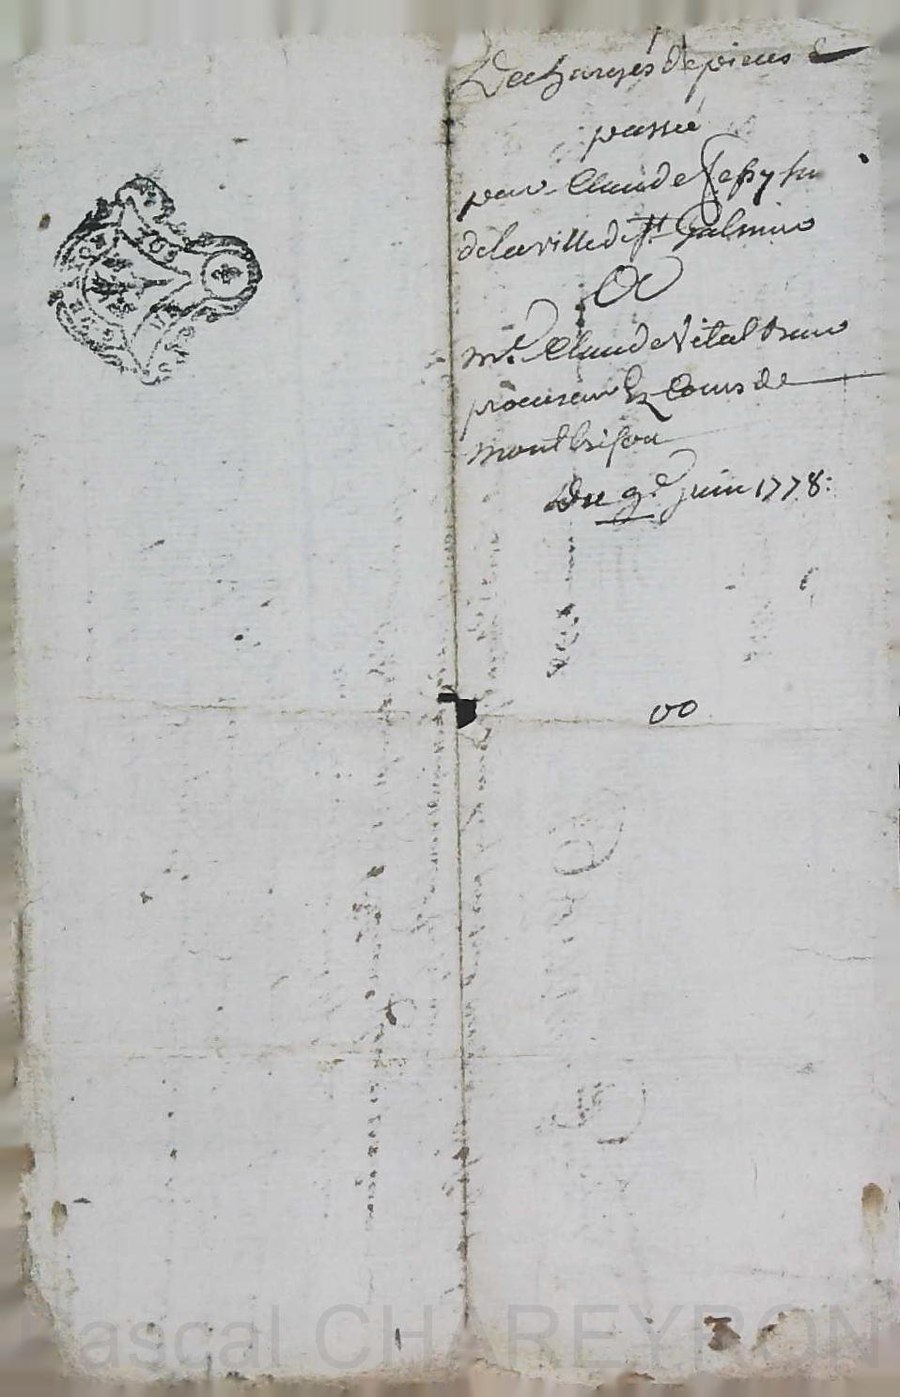 Decharges de pieces &
passée
par Claude
de la ville de St. Galmier
A
Me. Claude Vital
procureur Ez Cours de
montbrison
Du 9e. juin 1778:
00
Pascal CHAREYRON